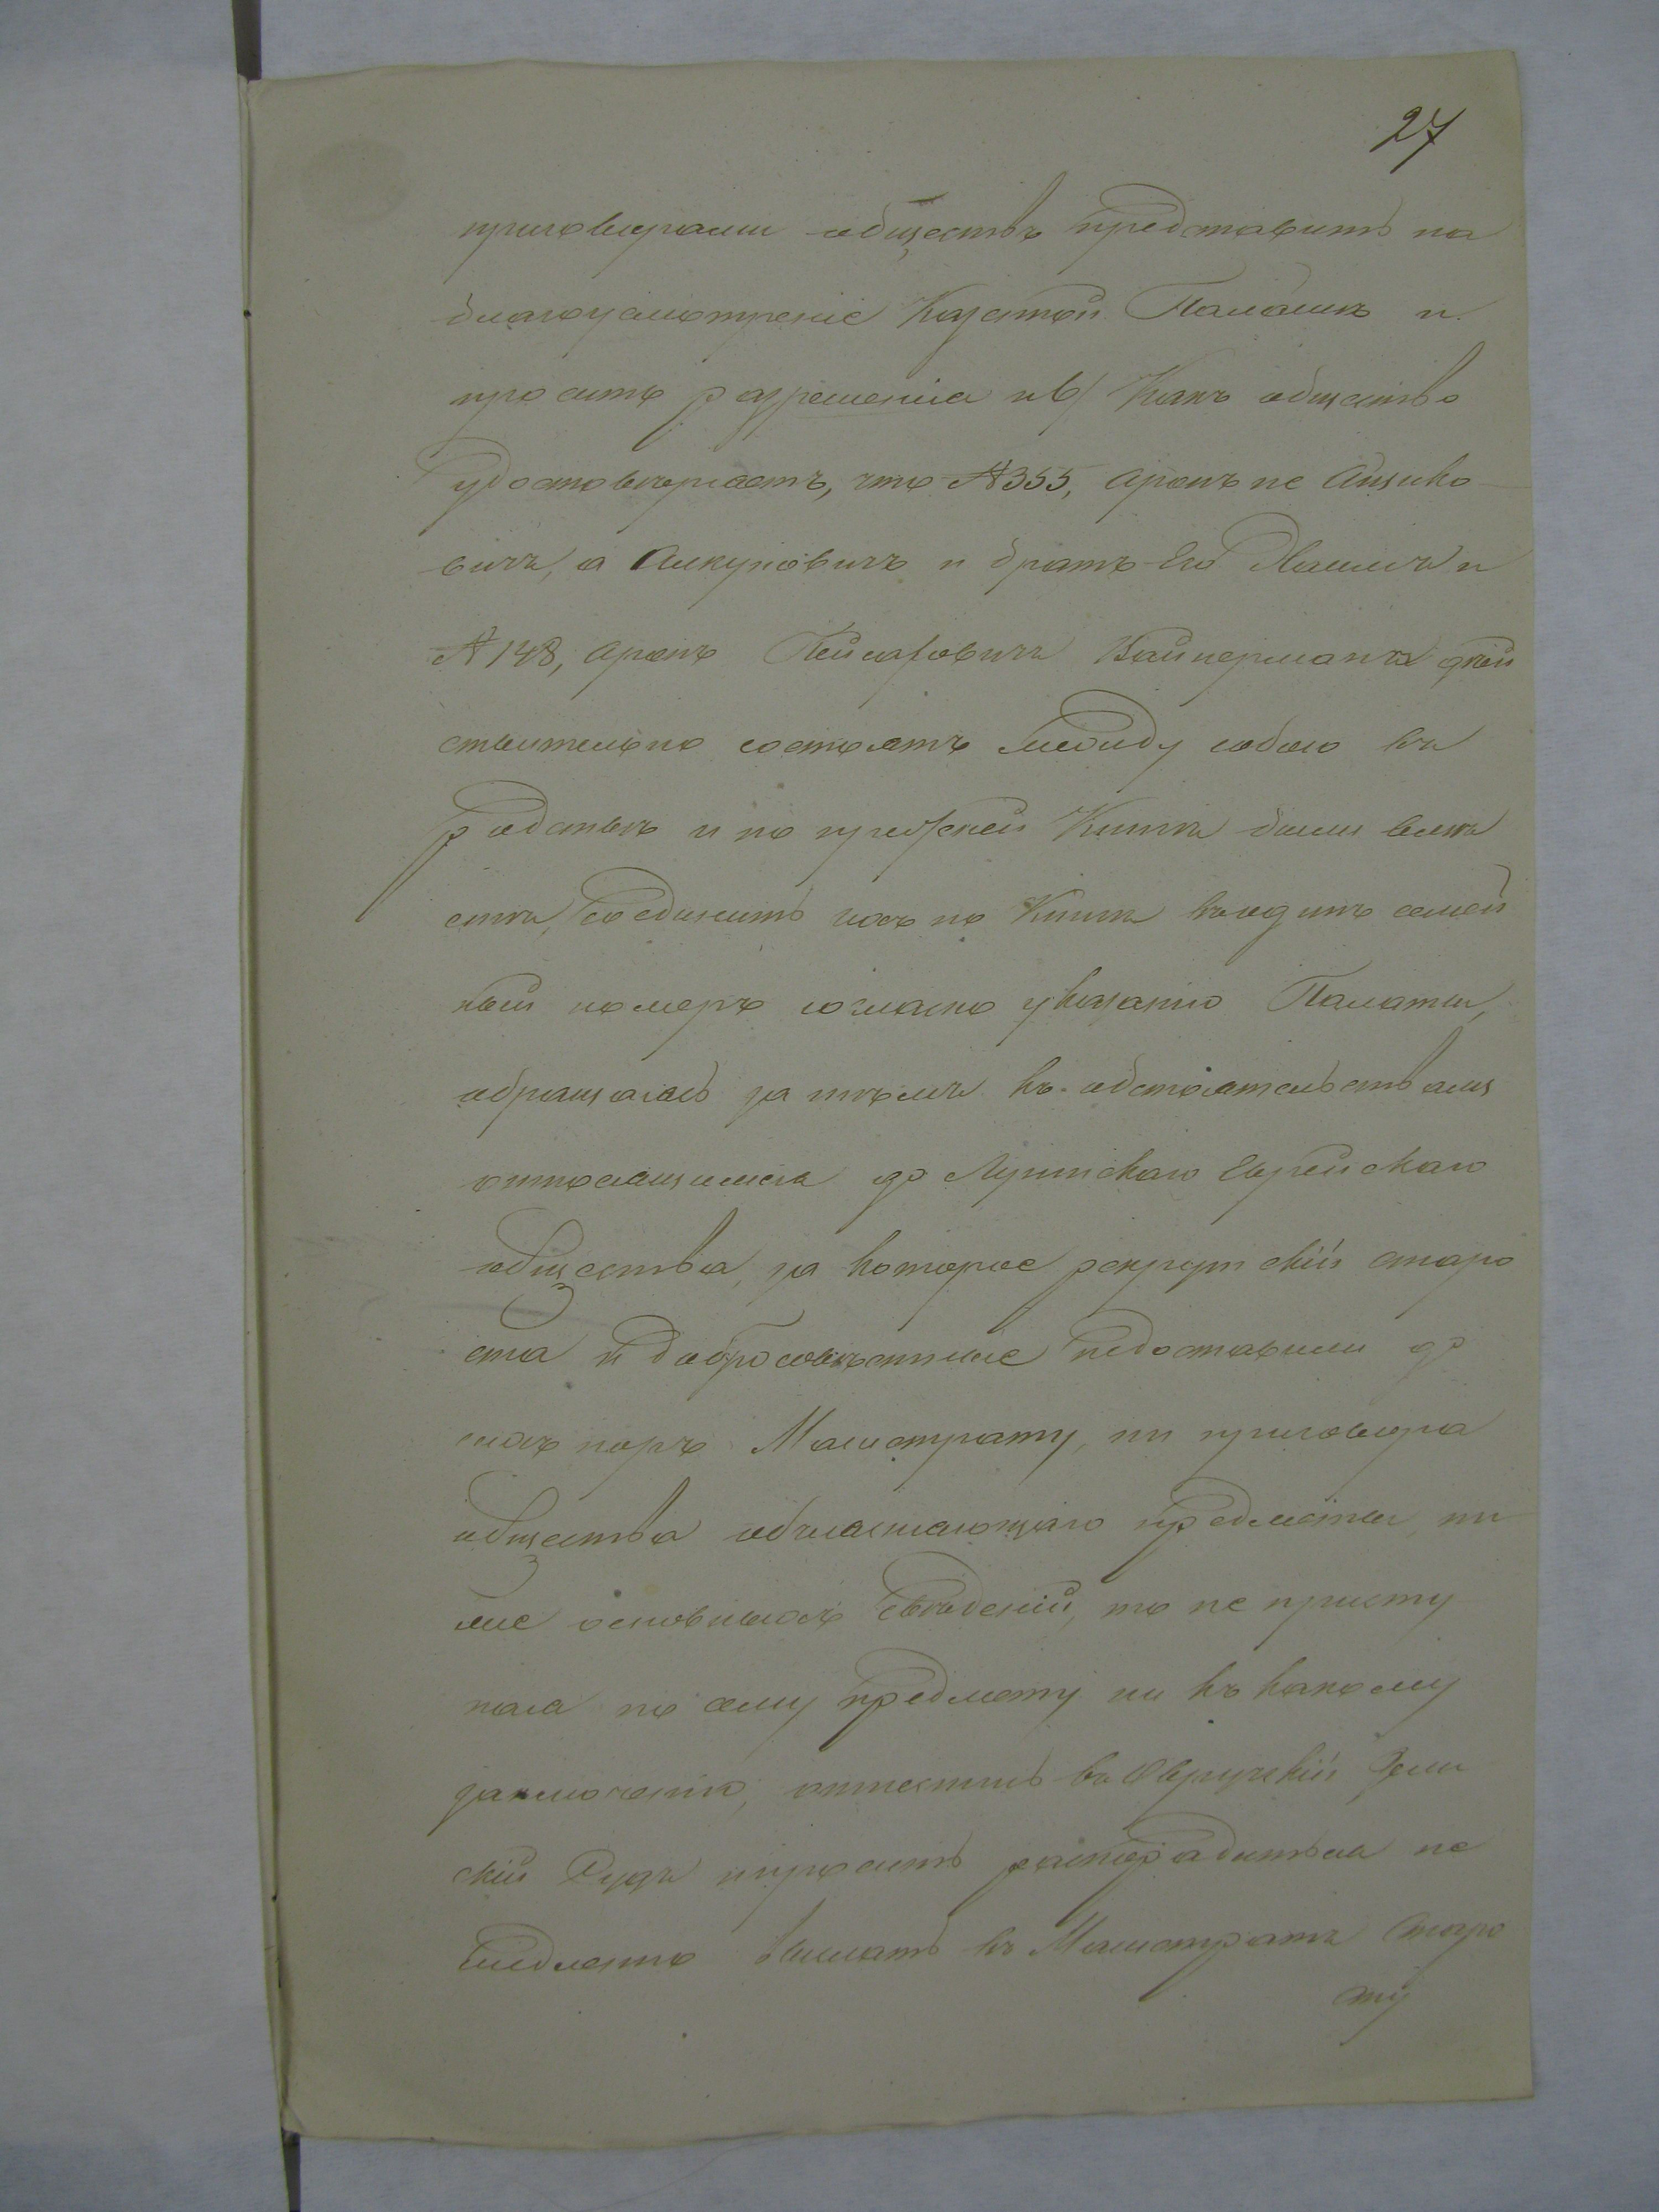 27
приговорами обществъ представить на
благоусмотреніе Казенной Палаты и
просить разрешенія и в/ Какъ общество
удостовѣряетъ, что №355, Аронъ не Аицико
вичъ, а Анкуновичъ и братъ его и
№148, Аронъ Пейсаховичъ Вайнерманъ дѣй
ствительно состоятъ между собою въ
родствѣ и по прежней Книгѣ были вмѣ
стѣ, соединить ихъ по Книгѣ въ одинъ семей
ный номеръ согласно указанію Палаты,
обращаясь за тѣмъ къ обстоятельствамъ
относящимся до Лугинскаго Еврейскаго
общества, за которое рекрутскій старо
ста и добросовѣстные недоставили до
сихъ поръ Магистрату, ни приговора
общества объясняющаго предметы, ни
же основныхъ свѣдений, то не присту
пая по сему предмету ни къ какому
заключенію, отнестись въ Овручскій Зем
скій Судъ и просить распорядиться не
медленно выслать въ Магистратъ старо
сту